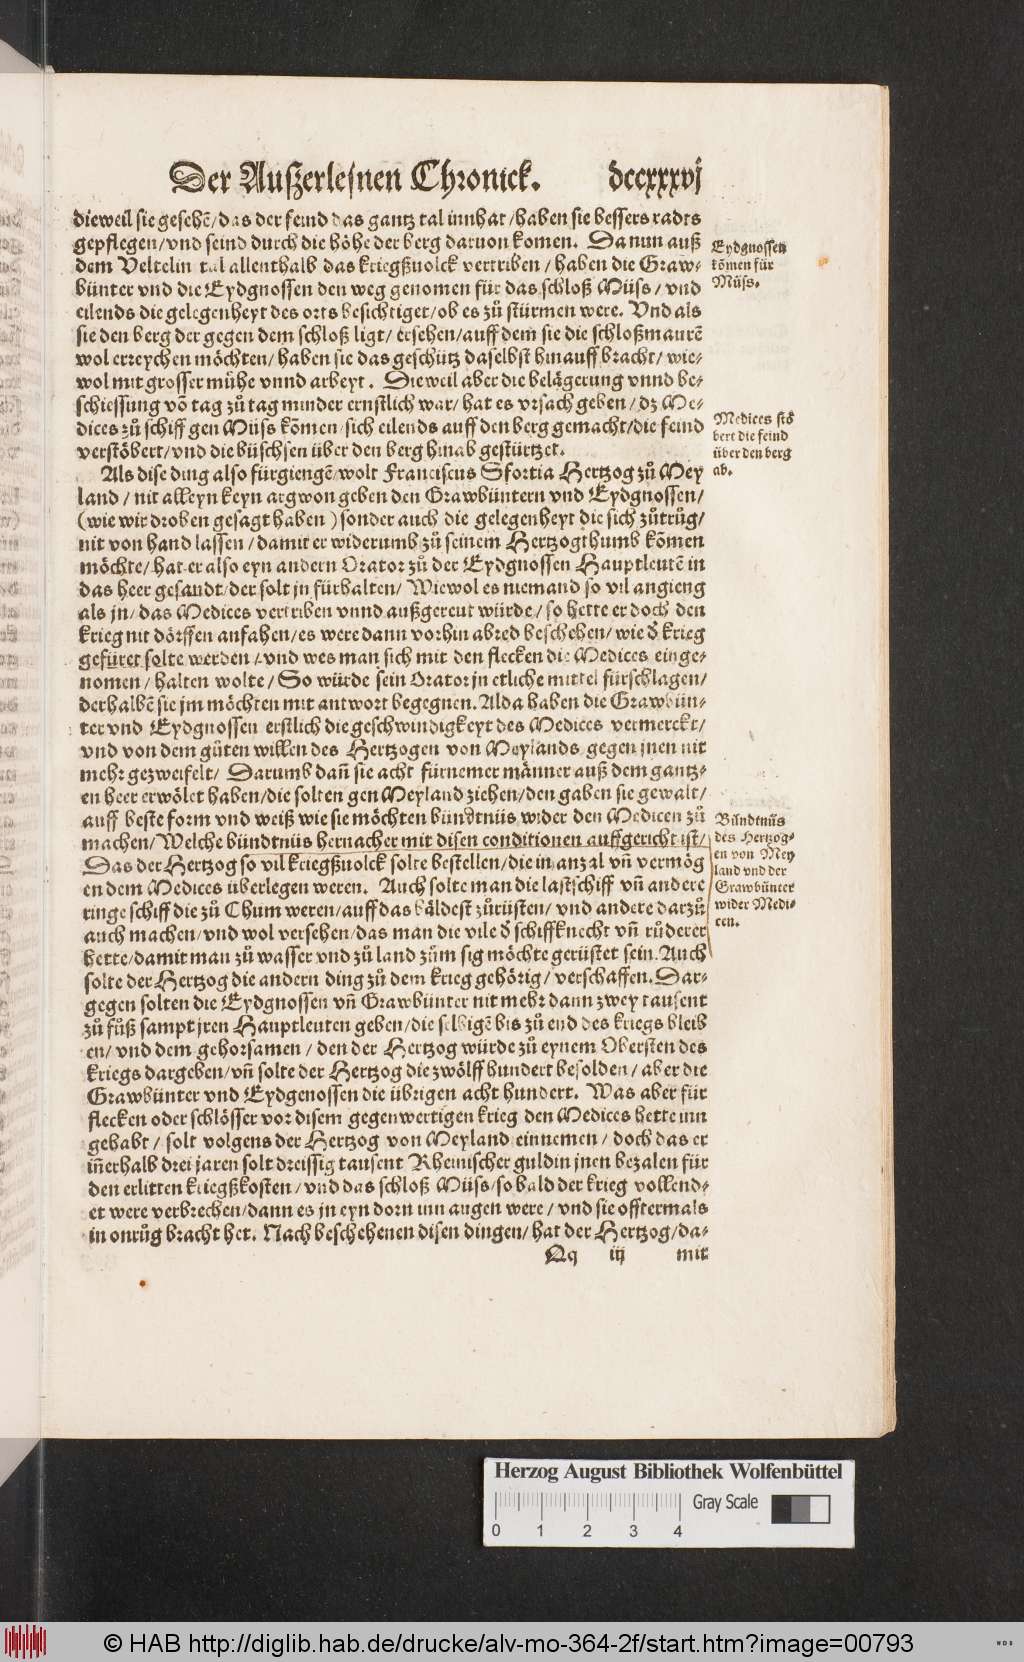 Der Außerlesnen Chronick. dccxxxvj
dieweil sie gesehẽ/das der feind das gantz tal innhat/haben sie bessers radts
gepflegen/vnd seind durch die höhe der berg daruon komen. Da nun auß
dem Veltelin tal allenthalb das kriegßuolck vertriben/haben die Graw-
bünter vnd die Eydgnossen den weg genomen für das schloß Müss/vnd
eilends die gelegenheyt des orts besichtiget/ob es zů stürmen were. Vnd als
sie den berg der gegen dem schloß ligt/ersehen/auff dem sie die schloßmaurẽ
wol erreychen möchten/haben sie das geschütz daselbst hinauff bracht/wie-
wol mit grosser mühe vnnd arbeyt. Dieweil aber die belägerung vnnd be-
schiessung võ tag zů tag minder ernstlich war/hat es vrsach geben/dz Me-
dices zů schiff gen Müss kõmen/sich eilends auff den berg gemacht/die feind
verstöbert/vnd die büschsen über den berg hinab gestürtzet.
Als dise ding also fürgiengẽ/wolt Franciscus Sfortia Hertzog zů Mey
land/nit alleyn keyn argwon geben den Grawbüntern vnd Eydgnossen/
(wie wir droben gesagt haben) sonder auch die gelegenheyt die sich zůtrůg/
nit von hand lassen/damit er widerumb zů seinem Hertzogthumb kõmen
möchte/hat er also eyn andern Orator zů der Eydgnossen Hauptleutẽ in
das heer gesandt/der solt jn fürhalten/Wiewol es niemand so vil angieng
als jn/das Medices vertriben vnnd außgereut würde/so hette er doch den
krieg nit dörffen anfahen/es were dann vorhin abred beschehen/wie d̕ krieg
gefüret solte werden/vnd wes man sich mit den flecken die Medices einge-
nomen/halten wolte/So würde sein Orator jn etliche mittel fürschlagen/
derhalbẽ sie jm möchten mit antwort begegnen. Alda haben die Grawbün-
ter vnd Eydgnossen erstlich die geschwindigkeyt des Medices vermerckt/
vnd von dem gůten willen des Hertzogen von Meylands gegen jnen nit
mehr gezweifelt/Darumb dañ sie acht fürnemer männer auß dem gantz-
en heer erwölet haben/die solten gen Meyland ziehen/den gaben sie gewalt/
auff beste form vnd weiß wie sie möchten bündtnüs wider den Medicen zů
machen/Welche bündtnüs hernacher mit disen conditionen auffgericht ist/
Das der Hertzog so vil kriegßuolck solte bestellen/die in anzal vñ vermög
en dem Medices überlegen weren. Auch solte man die lastschiff vñ andere
ringe schiff die zů Chum weren/auff das bäldest zůrüsten/vnd andere darzů
auch machen/vnd wol versehen/das man die vile d̕ schiffknecht vñ růderer
hette/damit man zů wasser vnd zů land zům sig möchte gerüstet sein. Auch
solte der Hertzog die andern ding zů dem krieg gehörig/verschaffen. Dar-
gegen solten die Eydgnossen vñ Grawbünter nit mehr dann zwey tausent
zů fůß sampt jren Hauptleuten geben/die selbigẽ bis zů end des kriegs bleib
en/vnd dem gehorsamen/den der Hertzog würde zů eynem Obersten des
kriegs dargeben/vñ solte der Hertzog die zwölff hundert besolden/aber die
Grawbünter vnd Eydgenossen die übrigen acht hundert. Was aber für
flecken oder schlösser vor disem gegenwertigen krieg den Medices hette inn
gehabt/solt volgens der Hertzog von Meyland einnemen/doch das er
iñerhalb drei jaren solt dreissig tausent Rheinischer guldin jnen bezalen für
den erlitten kriegßkosten/vnd das schloß Müss/so bald der krieg vollend-
et were verbrechen/dann es jn eyn dorn inn augen were/vnd sie offtermals
in onrůg bracht het. Nach beschehenen disen dingen/hat der Hertzog/da-
Qq iij mit
Eydgnossen
kõmen für
Müss.
Medices stö
bert die feind
über den berg
ab.
Bündtnüs
des Hertzog-
en von Mey
land vnd der
Grawbünter
wider Medi-
cen.
Herzog August Bibliothek Wolfenbüttel
Gray Scale
0 1 2 3 4
© HAB http://diglib.hab.de/drucke/alv-mo-364-2f/start.htm?image=00793